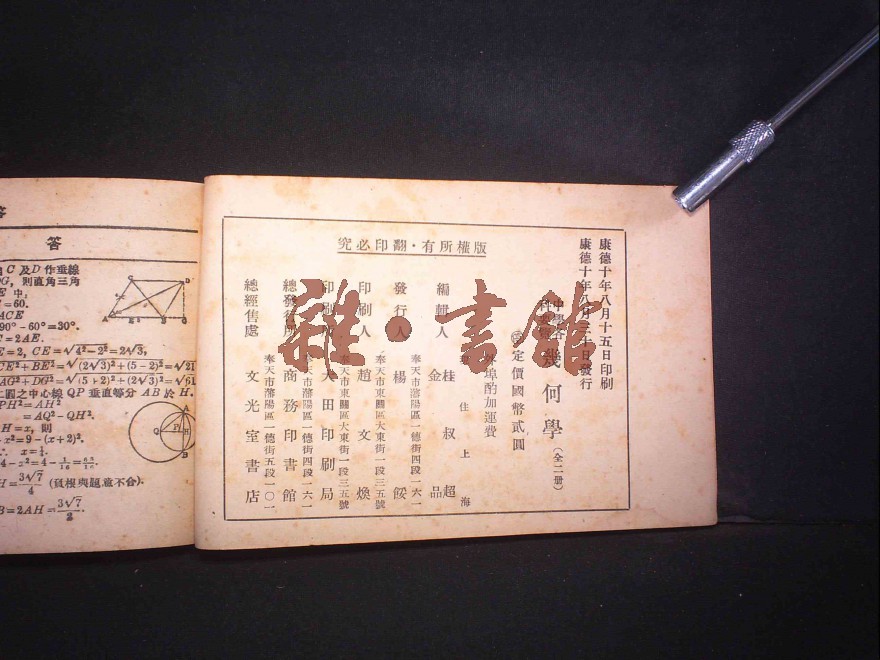 答
答
C 及 D 作垂線
DG, 則直角三角
E 中:
=60.
ACE
90°-60°=30°.
C=2AE.
E=2, CE=√4²-2²=2√3,
CE²+BE²=√(2√3)²+(5-2)²=√21
AG²+DG²=√(5+2)²+(2√3)²=√61
二圓之中心線 QP 垂直等分 AB 於 H.
PH²=AH²
=AQ²-QH².
H=x, 則
-x²=9-(x+2)².
∴ x=¼.
H=3√7/4 (負根與題意不合).
B=2AH=3√7/2.
康德十年八月十五日印刷
康德十年八月三十日發行
幾何學(全二册)
定價國幣貳圓
埠酌加運費
版權所有·翻印必究
編輯人 桂叔超
金品
住上海
發行人 楊餒
奉天市瀋陽區一德街四段一六一
印刷人 趙文煥
奉天市東關區大東街一段三五號
印刷 大田印刷局
奉天市東關區大東街一段三五號
總發行所 商務印書館
奉天市瀋陽區一德街四段一六一
總經售處 文光室書店
奉天市瀋陽區一德街五段一〇一
雜·書館